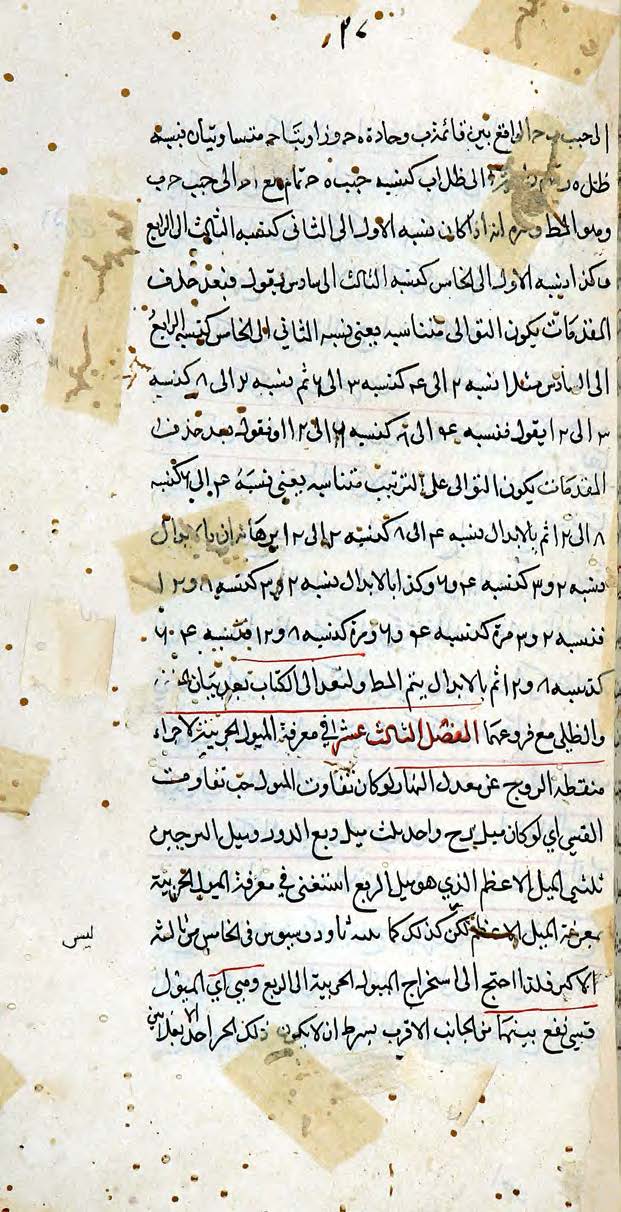 ٣٧
الى جيب ب ح الواقع بين قائمة ب وحادة ه ح وزاويتا ح متساويتان فنسبة
ظل ه الى ظل اب كنسبة جيب ه ح تمام مع الى جيب ح ب
وهو المط انه اذا كان نسبة الاول الى الثانى كنسبة الثالث الى الرابع
وكذا نسبة الاول الى الخامس كنسبة الثالث الى السادس نقول فبعد حذف
المقدمات يكون التوالى متناسبة يعنى نسبة الثانى الى الخامس كنسبة الرابع
الى السادس مثلا نسبة ٢ الى ٤ كنسبة ٣ الى ٦ ثم نسبة ٢ الى ٨ كنسبة
٣ الى ١٢ نقول فنسبة ٤ الى ٨ كنسبة ٦ الى ١٢ او نقول بعد حذف
المقدمات يكون التوالى على الترتيب متناسبة يعنى نسبة ٤ الى ٦ كنسبة
٨ الى ١٢ ثم بالابدال نسبة ٤ الى ٨ كنسبة ٦ الى ١٢ برهانه ان بالابدال
نسبة ٢ و ٣ كنسبة ٤ و ٦ وكذا بالابدال نسبة ٢ و ٣ كنسبة ٨ و ١٢
فنسبة ٢ و ٣ مرة كنسبة ٤ و ٦ ومرة كنسبة ٨ و ١٢ فنسبة ٤ و ٦
كنسبة ٨ و ١٢ ثم بالابدال يتم المط ولنعد الى الكتاب بعد بيان
والظلى مع فروعهما الفصل الثالث عشر فى معرفة الميول الجزيية لاجزاء
منطقة البروج عن معدل النهار لو كان تفاوت الميول حسب تفاوت
القسى اى لو كان ميل برج واحد ثلث ميل ربع الدور وميل البرجين
ثلثى الميل الاعظم الذي هو ميل الربع استغنى فى معرفة الميول الجزيية
بمعرفة الميل الاعظم لكن ليس كذلك كما بينه ثاوذوسيوس فى الخامس من ثالثة
الاكر فلذا احتج الى استخراج الميول الجزيية الى الربع وهى اى الميول
قسى تقع بينهما من الجانب الاقرب بشرط ان لا يكون ذلك الجزء احد الانقلابين